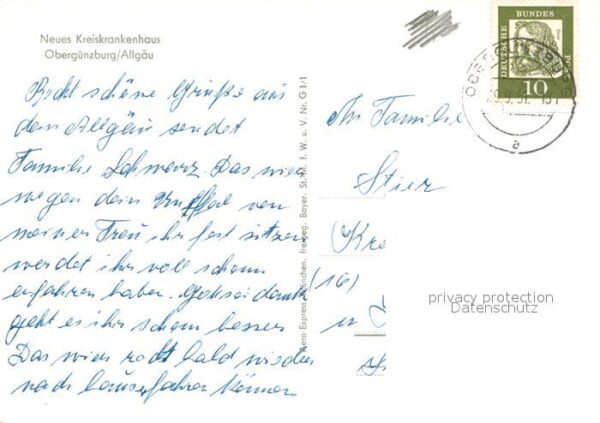 Neues Kreiskrankenhaus
Obergünzburg/Allgäu
Recht schöne Grüße aus
dem Allgäu sendet
Familie Schwarz. Das wier
wegen dem Unfall von
meiner Frau ihr fest sitzen
werdet ihr woll schonn
erfahren haben. Gotseidank
geht es ihr schonn besser
Das wier recht bald wieder
nach hause fahren können
Aero-Express München, Freigeg. Bayer. St. M. F. W. u. V. Nr. G 1/1
An Familie
Stier
Kre
(16)
u
St
DEUTSCHE
BUNDES
POST
10
OBERGÜNZBURG
a
privacy protection
Datenschutz